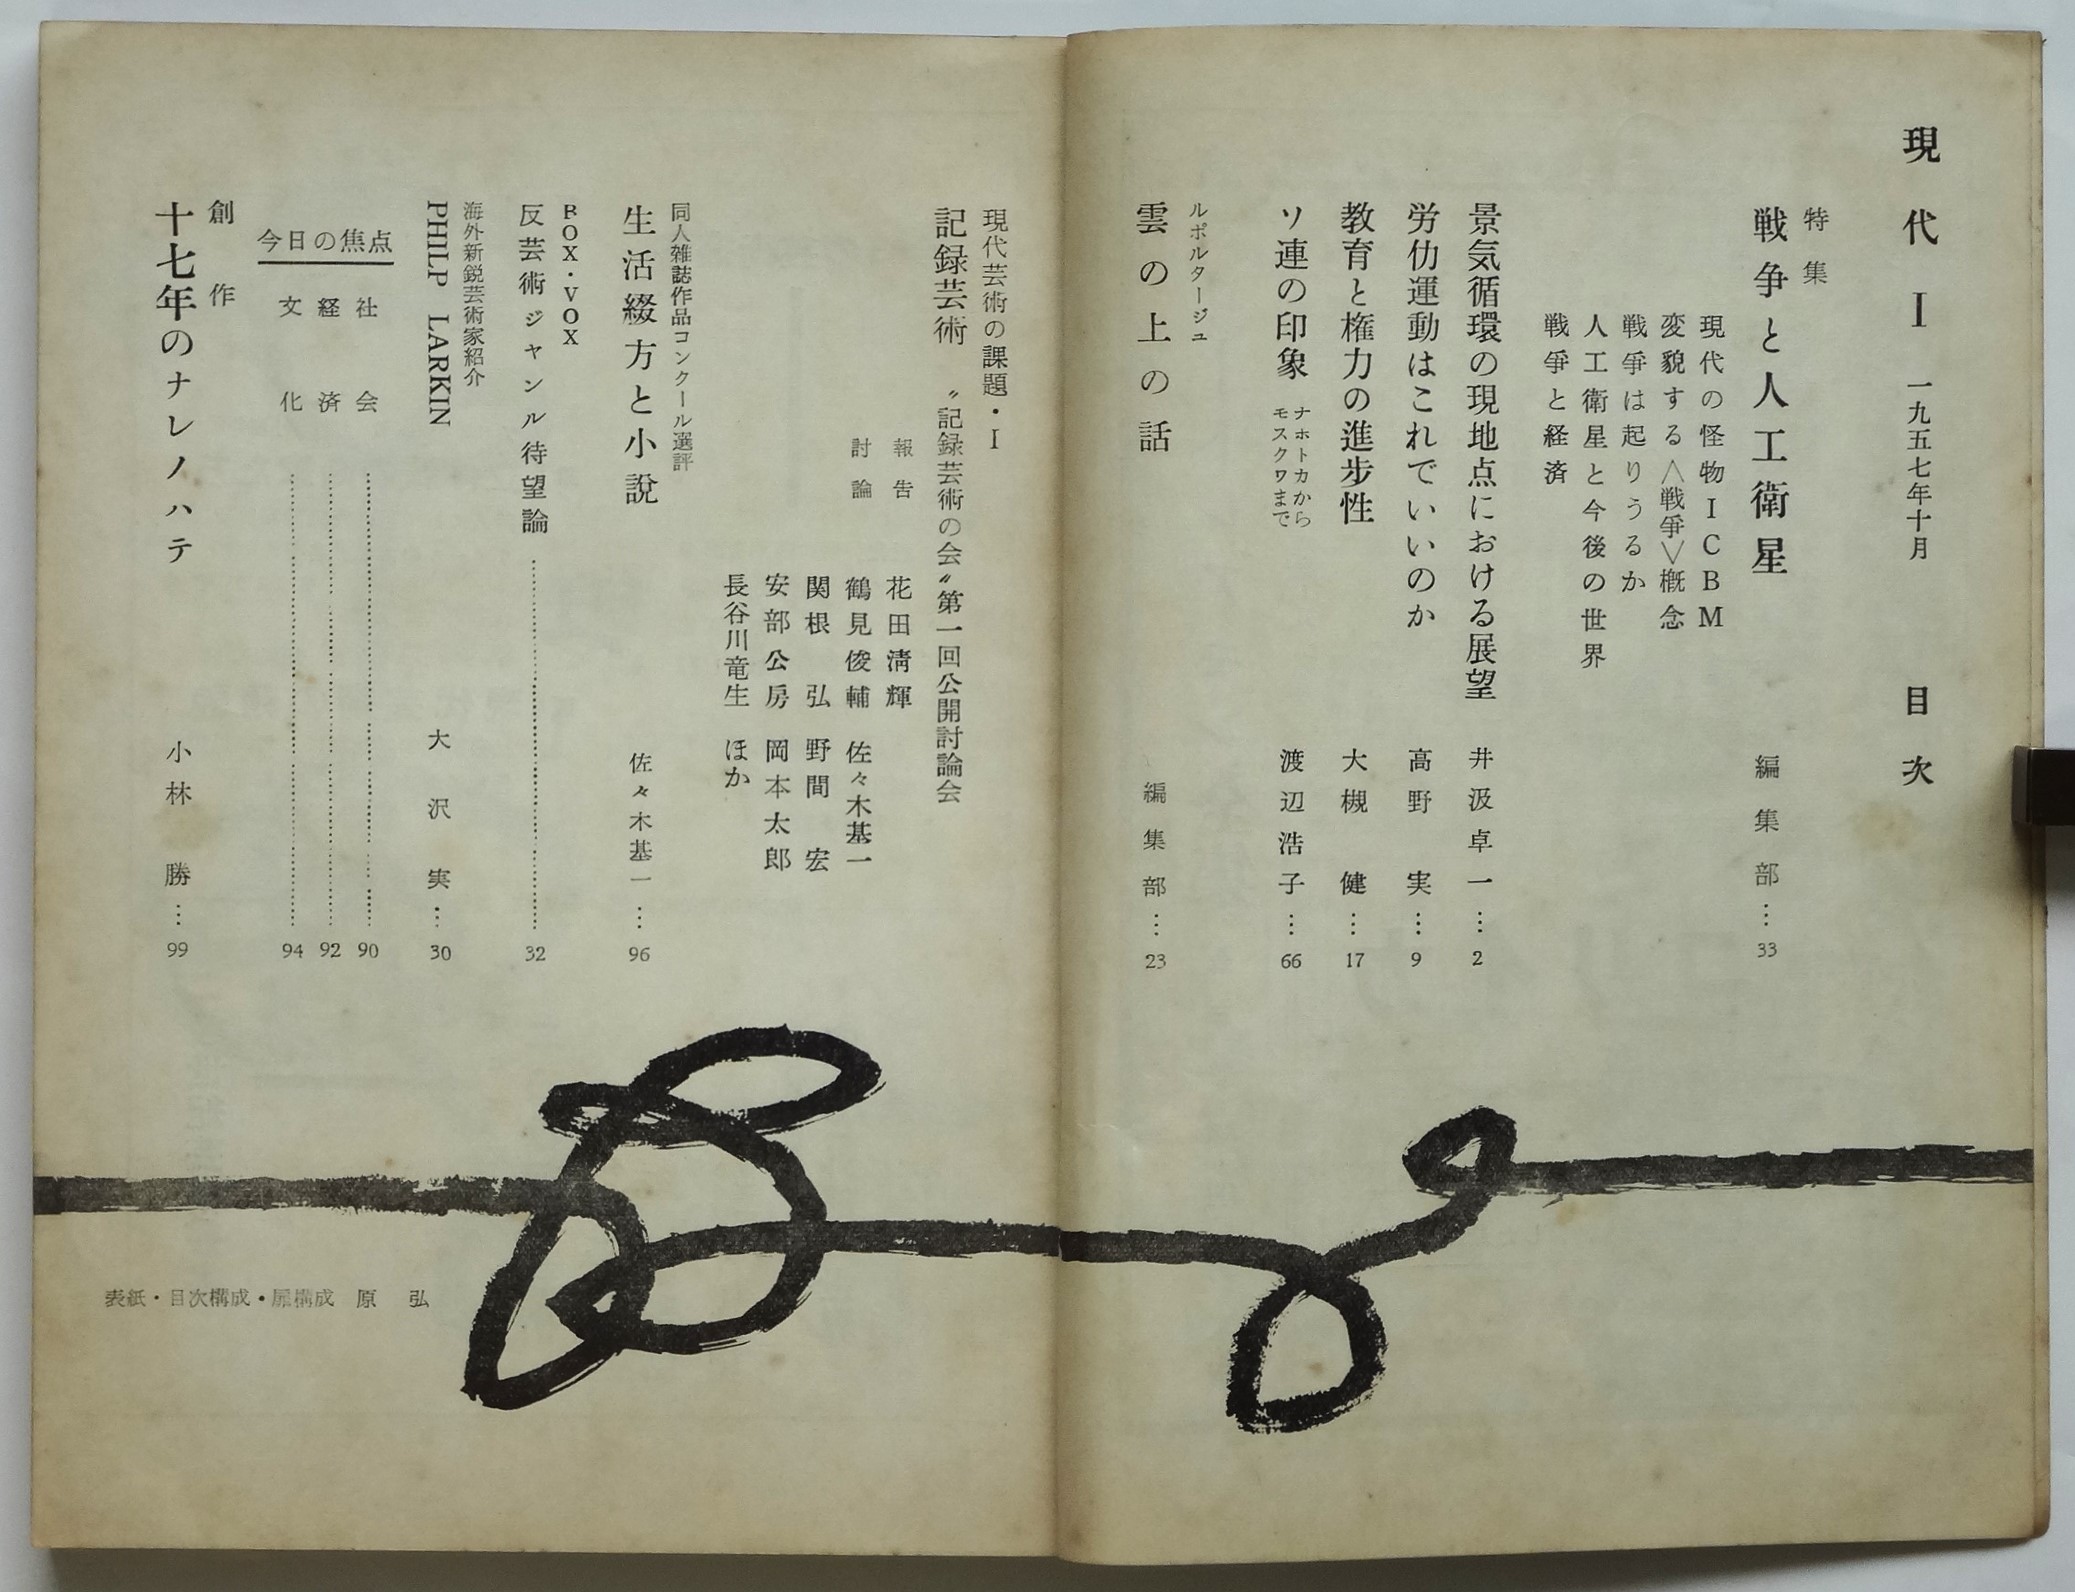 現代 I 一九五七年十月 目次
特集
戦争と人工衛星 編集部…33
現代の怪物ICBM
変貌する〈戦爭〉概念
戦爭は起りうるか
人工衛星と今後の世界
戦爭と経済
景気循環の現地点における展望 井汲卓一…2
労仂運動はこれでいいのか 高野実…9
教育と権力の進步性 大槻健…17
ソ連の印象 ナホトカから モスクワまで 渡辺浩子…66
ルポルタージュ
雲の上の話 編集部…23
現代芸術の課題・I
記録芸術 〝記録芸術の会〟第一回公開討論会
報告 花田淸輝
討論 鶴見俊輔 佐々木基一
関根弘 野間宏
安部公房 岡本太郎
長谷川竜生 ほか
同人雑誌作品コンクール選評
生活綴方と小説 佐々木基一…96
BOX・VOX
反芸術ジャンル待望論……32
海外新鋭芸術家紹介
PHILP LARKIN 大沢実…30
今日の焦点
社会……90
経済……92
文化……94
創作
十七年のナレノハテ 小林勝…99
表紙・目次構成・扉構成 原 弘